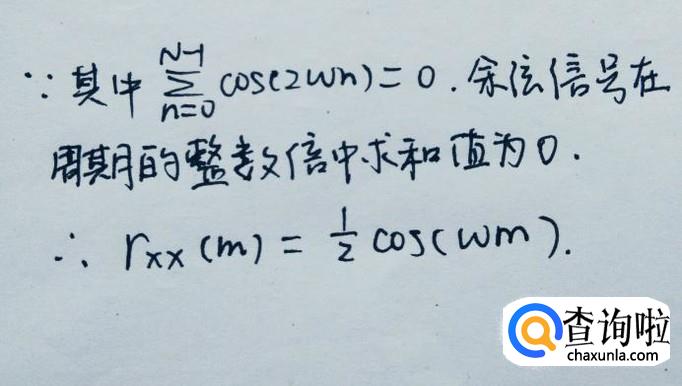 ∵ 其中 ∑_{n=0}^{N-1} cos(2wn) = 0 . 余弦信号在
周期的整数倍中求和值为0 .
∴ r_{xx}(m) = 1/2 cos(wm).
查询啦
chaxunla.com